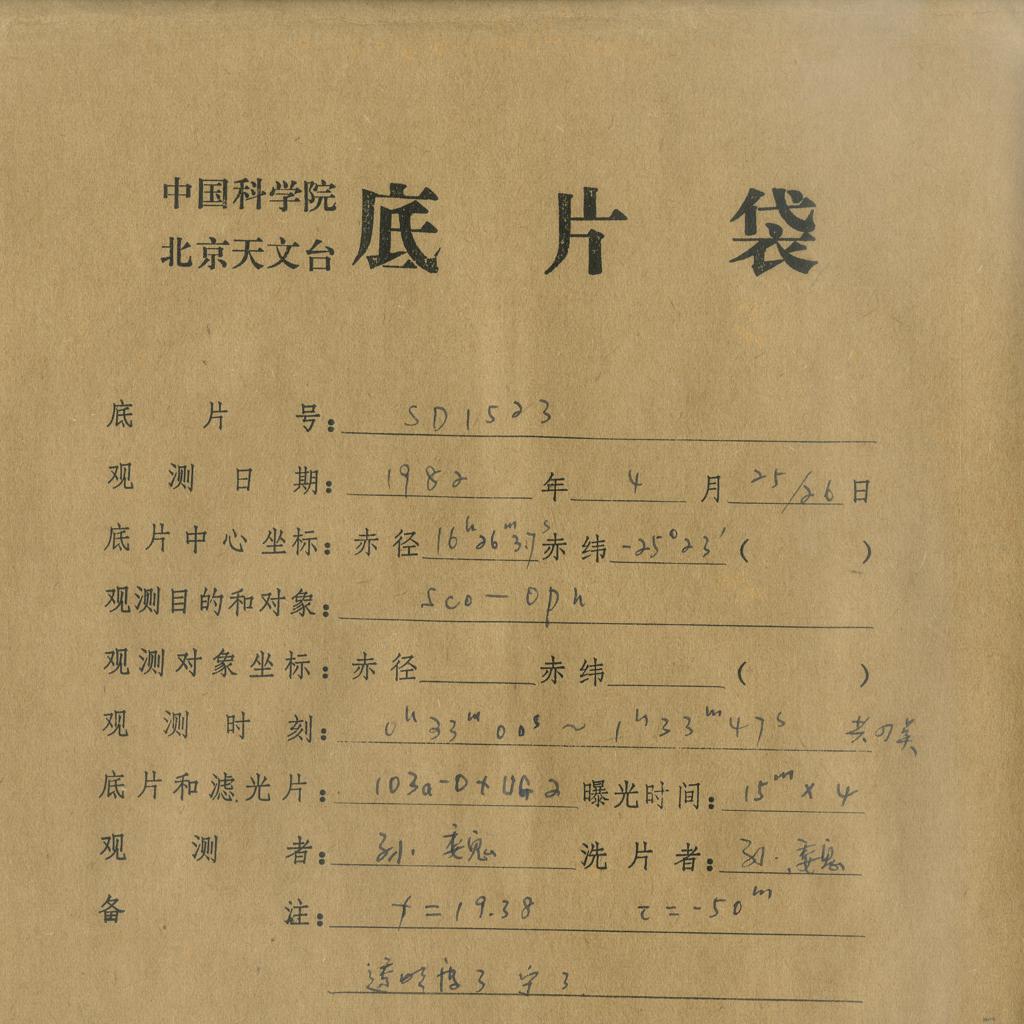 中国科学院
北京天文台
底片袋
底片号: SD1523
观测日期: 1982年4月25/26日
底片中心坐标: 赤径16h26m37s赤纬-25°23′( )
观测目的和对象: Sco-Oph
观测对象坐标: 赤径 赤纬 ( )
观测时刻: 0h33m00s~1h33m47s
底片和滤光片: 103a-O+UG2 曝光时间: 15m×4
观测者: 孙. 洗片者: 孙.
备注: f=19.38 τ=-50m
透明度3 宁3